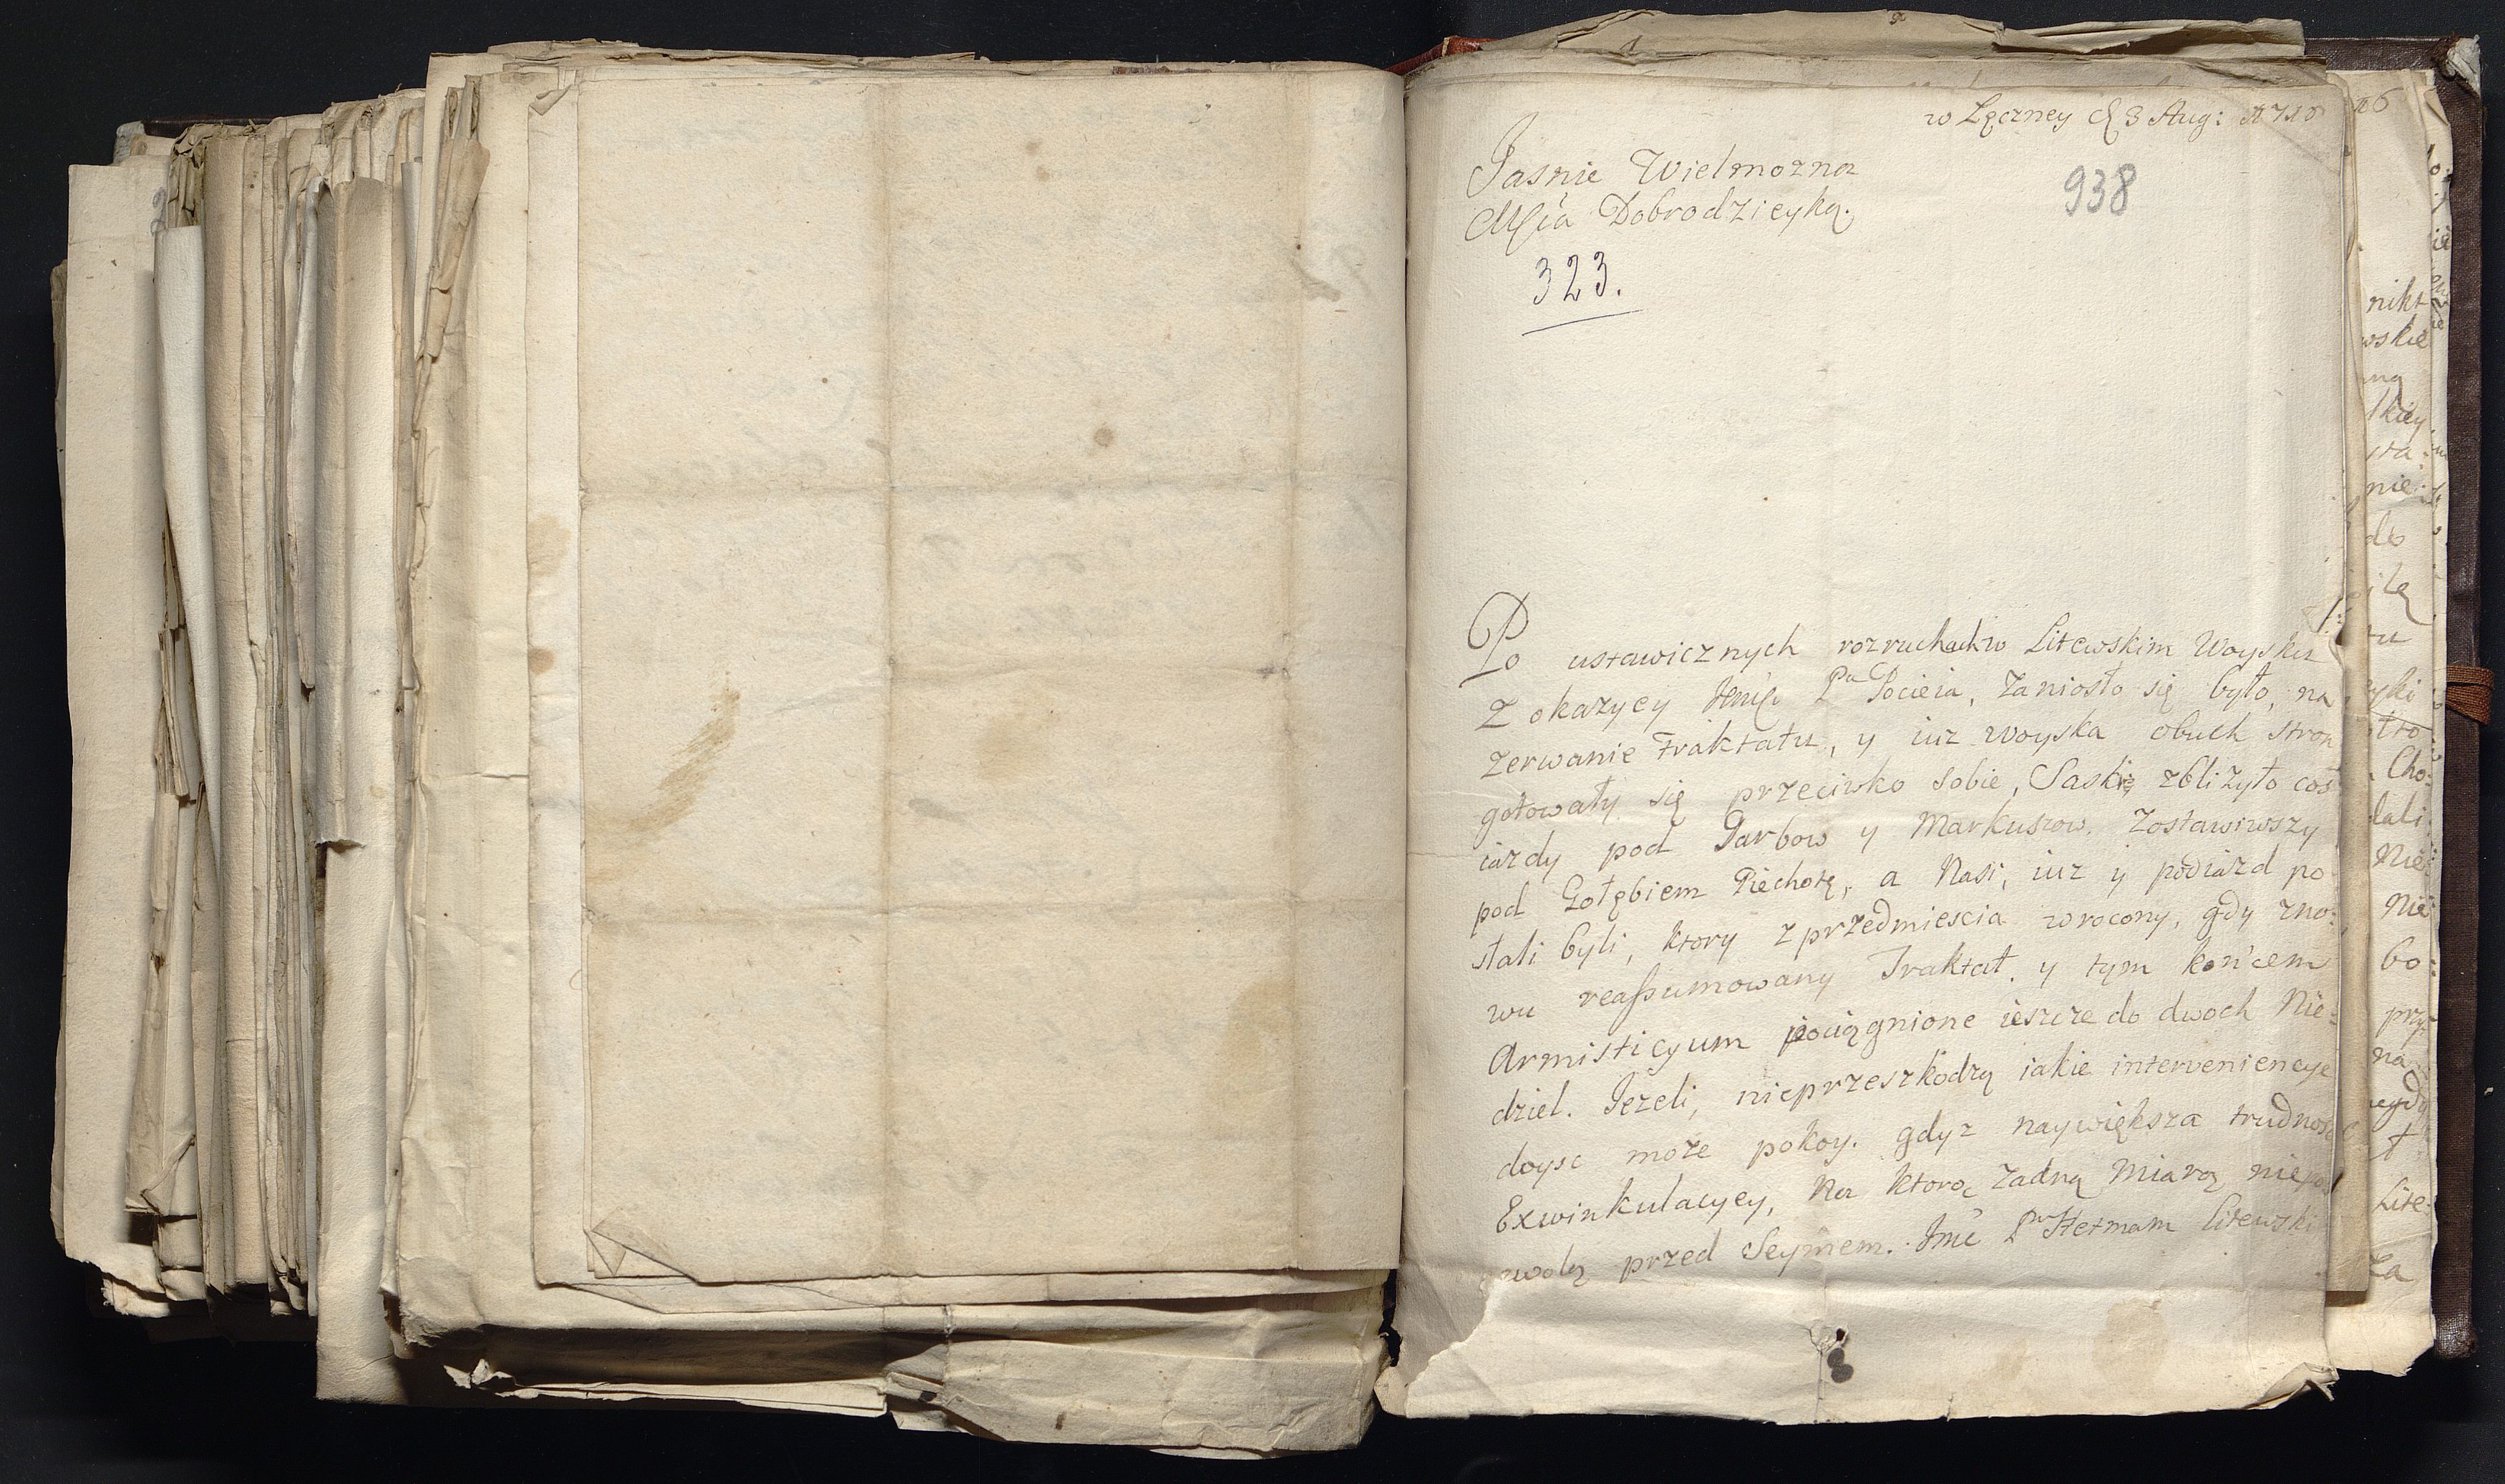 w Łęczney d 3 Aug:
938
Jasnie Wielmozna
Mścia Dobrodzieyką.
323.
Po ustawicznych rozruchach w Litewskim Woysku
Z okazyey Jmści Pa Pocieia, Zaniosło się było, na
Zerwanie Traktatu, y iuz woyska obuch stron
gotowały się przeciwko sobie, Saskie zbliżyło coś
iazdy pod Garbow y Markuszow. Zostawiwszy
pod Gołębiem Piechotę, a Nasi, iuz y podiazd po
słali byli, ktory z przedmiescia wrocony, gdy zno:
wu reassumowany Traktat. y tym końcem
Armisticyum pociągnione ieszcze do dwoch Nie:
dziel. Jezeli, nieprzeszkodzą iakie interveniencye
doysc może pokoy. gdyz naywiększa trudnosc
Exwinkulacyey, Na ktorą Zadną Miarą
przed Seymem. Jmć Pn Hetmam Litewski
nikt
wskie
nie
do
Cho:
dali
Nie
Nie
bo
przy
na
Lite:
Za